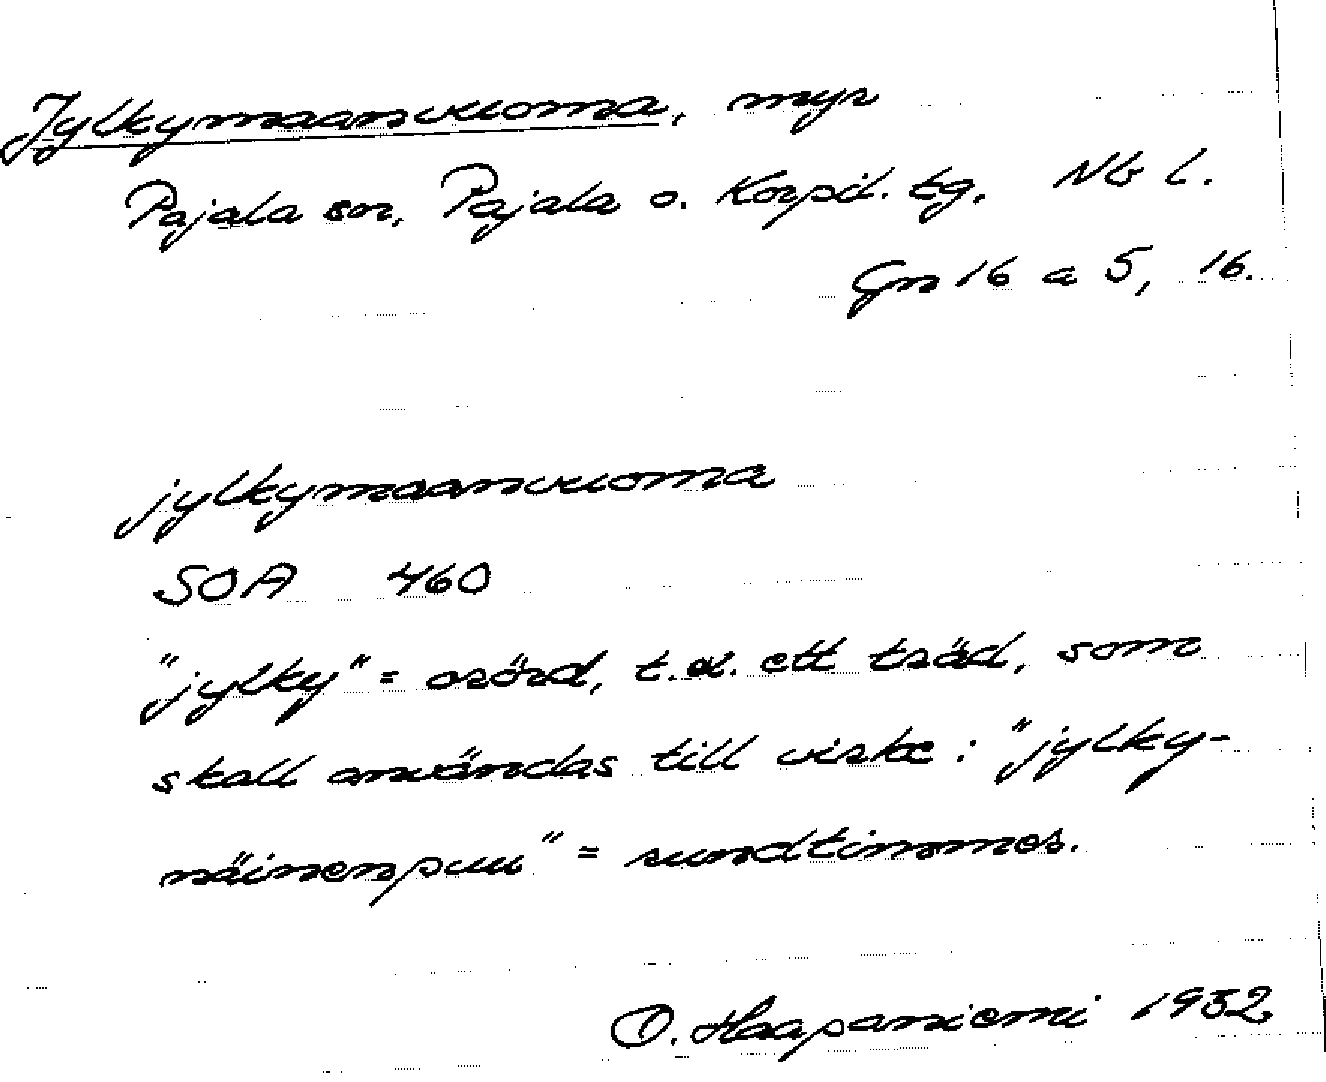 Jylkymaanvuoma, myr
Pajala sn, Pajala o. Korpil. tg. Nb l.
Gn 16 a 5, 16.
jylkymaanvuoma
SOA 460
"jylky" = orörd, t.ex. ett träd, som
skall användas till virke: "jylky-
näinenpuu" = rundtimmer.
O. Haapaniemi 1932